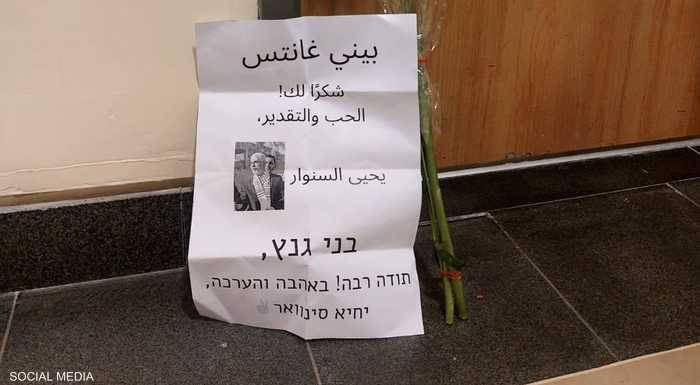 بيني غانتس
شكرًا لك!
الحب والتقدير،
يحيى السنوار
בני גנץ,
תודה רבה! באהבה והערכה,
יחיא סינוואר ✌
SOCIAL MEDIA